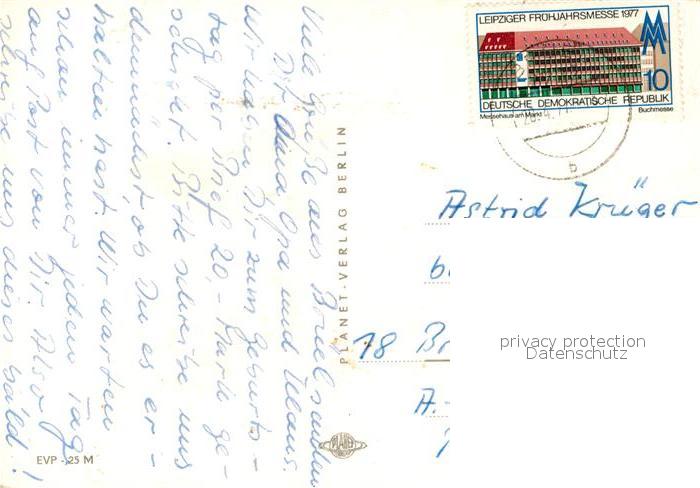 Viele Grüße aus Brüel senden
Dir Oma Opa und Klaus.
Wir haben Dir zum Geburts-
tag per Brief 20,- Mark ge-
schickt. Bitte schreibe uns
demnächst, ob Du es er-
halten hast. Wir warten
schon immer jeden Tag
auf Post von Dir. Also
schreibe uns dieses bald!
EVP -25 M
PLANET-VERLAG BERLIN
PLANET
LEIPZIGER FRÜHJAHRSMESSE 1977
10
DEUTSCHE DEMOKRATISCHE REPUBLIK
Messehaus am Markt Buchmesse
b
Astrid Krüger
18 Br
A.-
privacy protection
Datenschutz